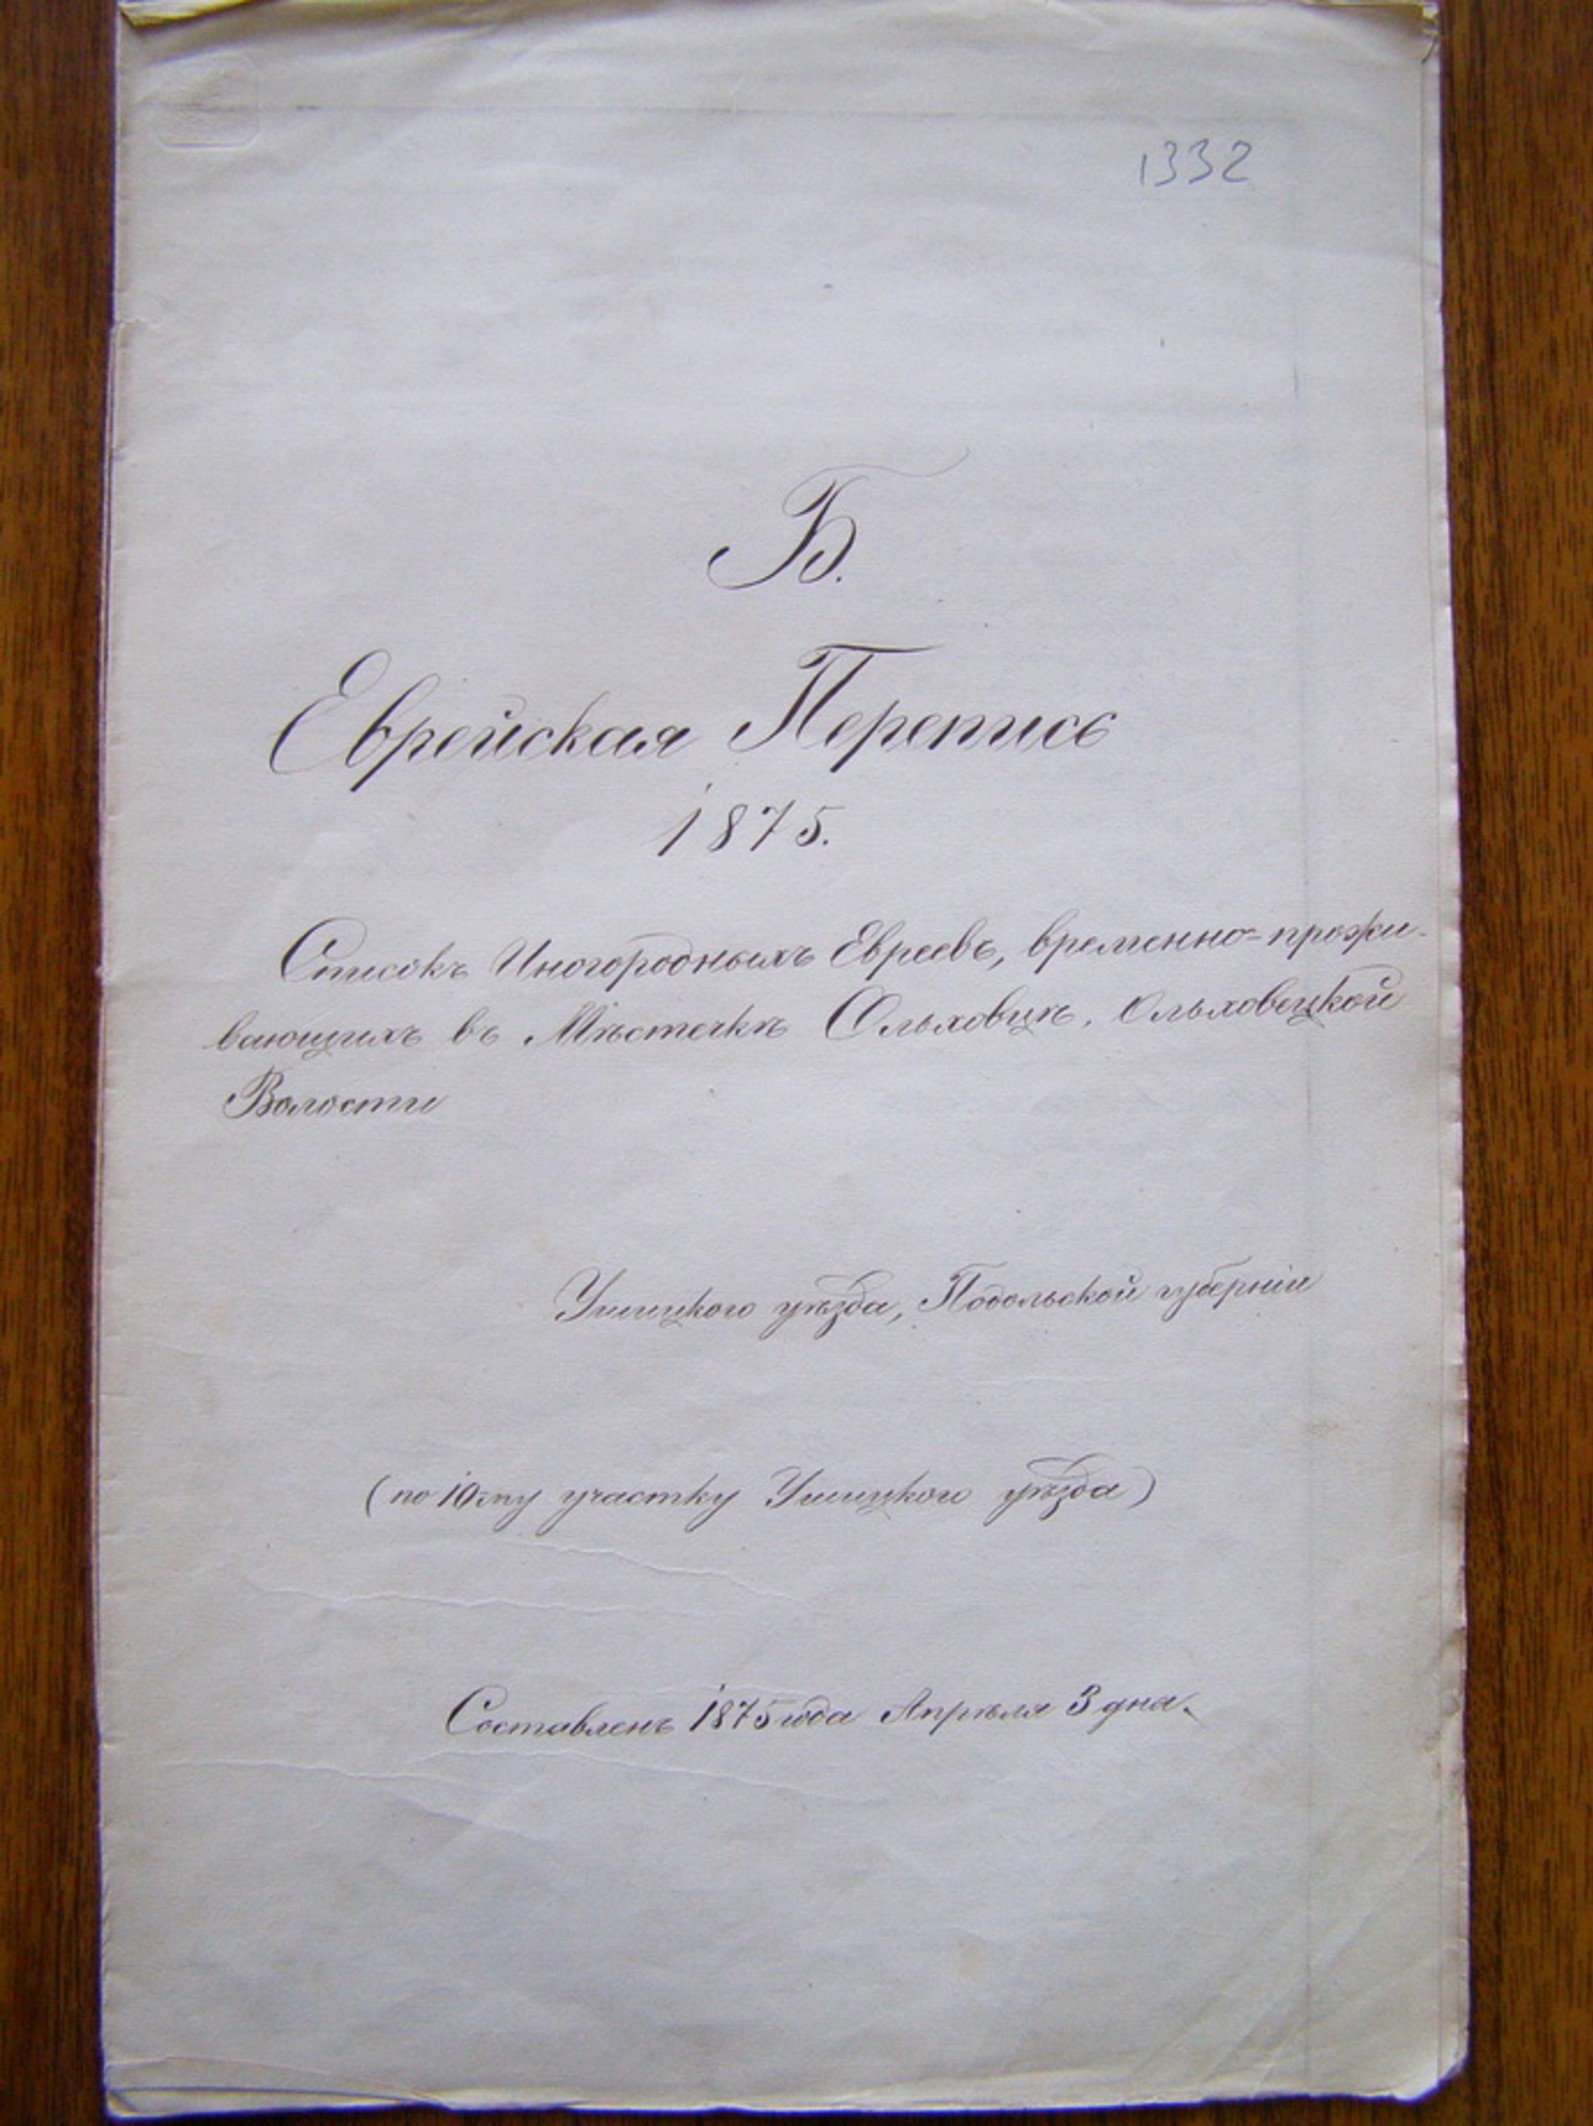 1332
Б.
Еврейская Перепись
1875.
Списокъ Иногородныхъ Евреевъ, временно-прожи-
вающихъ въ Мѣстечкѣ Ольховцѣ, Ольховецкой
Волости
Ушицкого уѣзда, Подольской губерніи
(по 10-му участку Ушицкого уѣзда)
Составленъ 1875 года Апрѣля 3 дня.